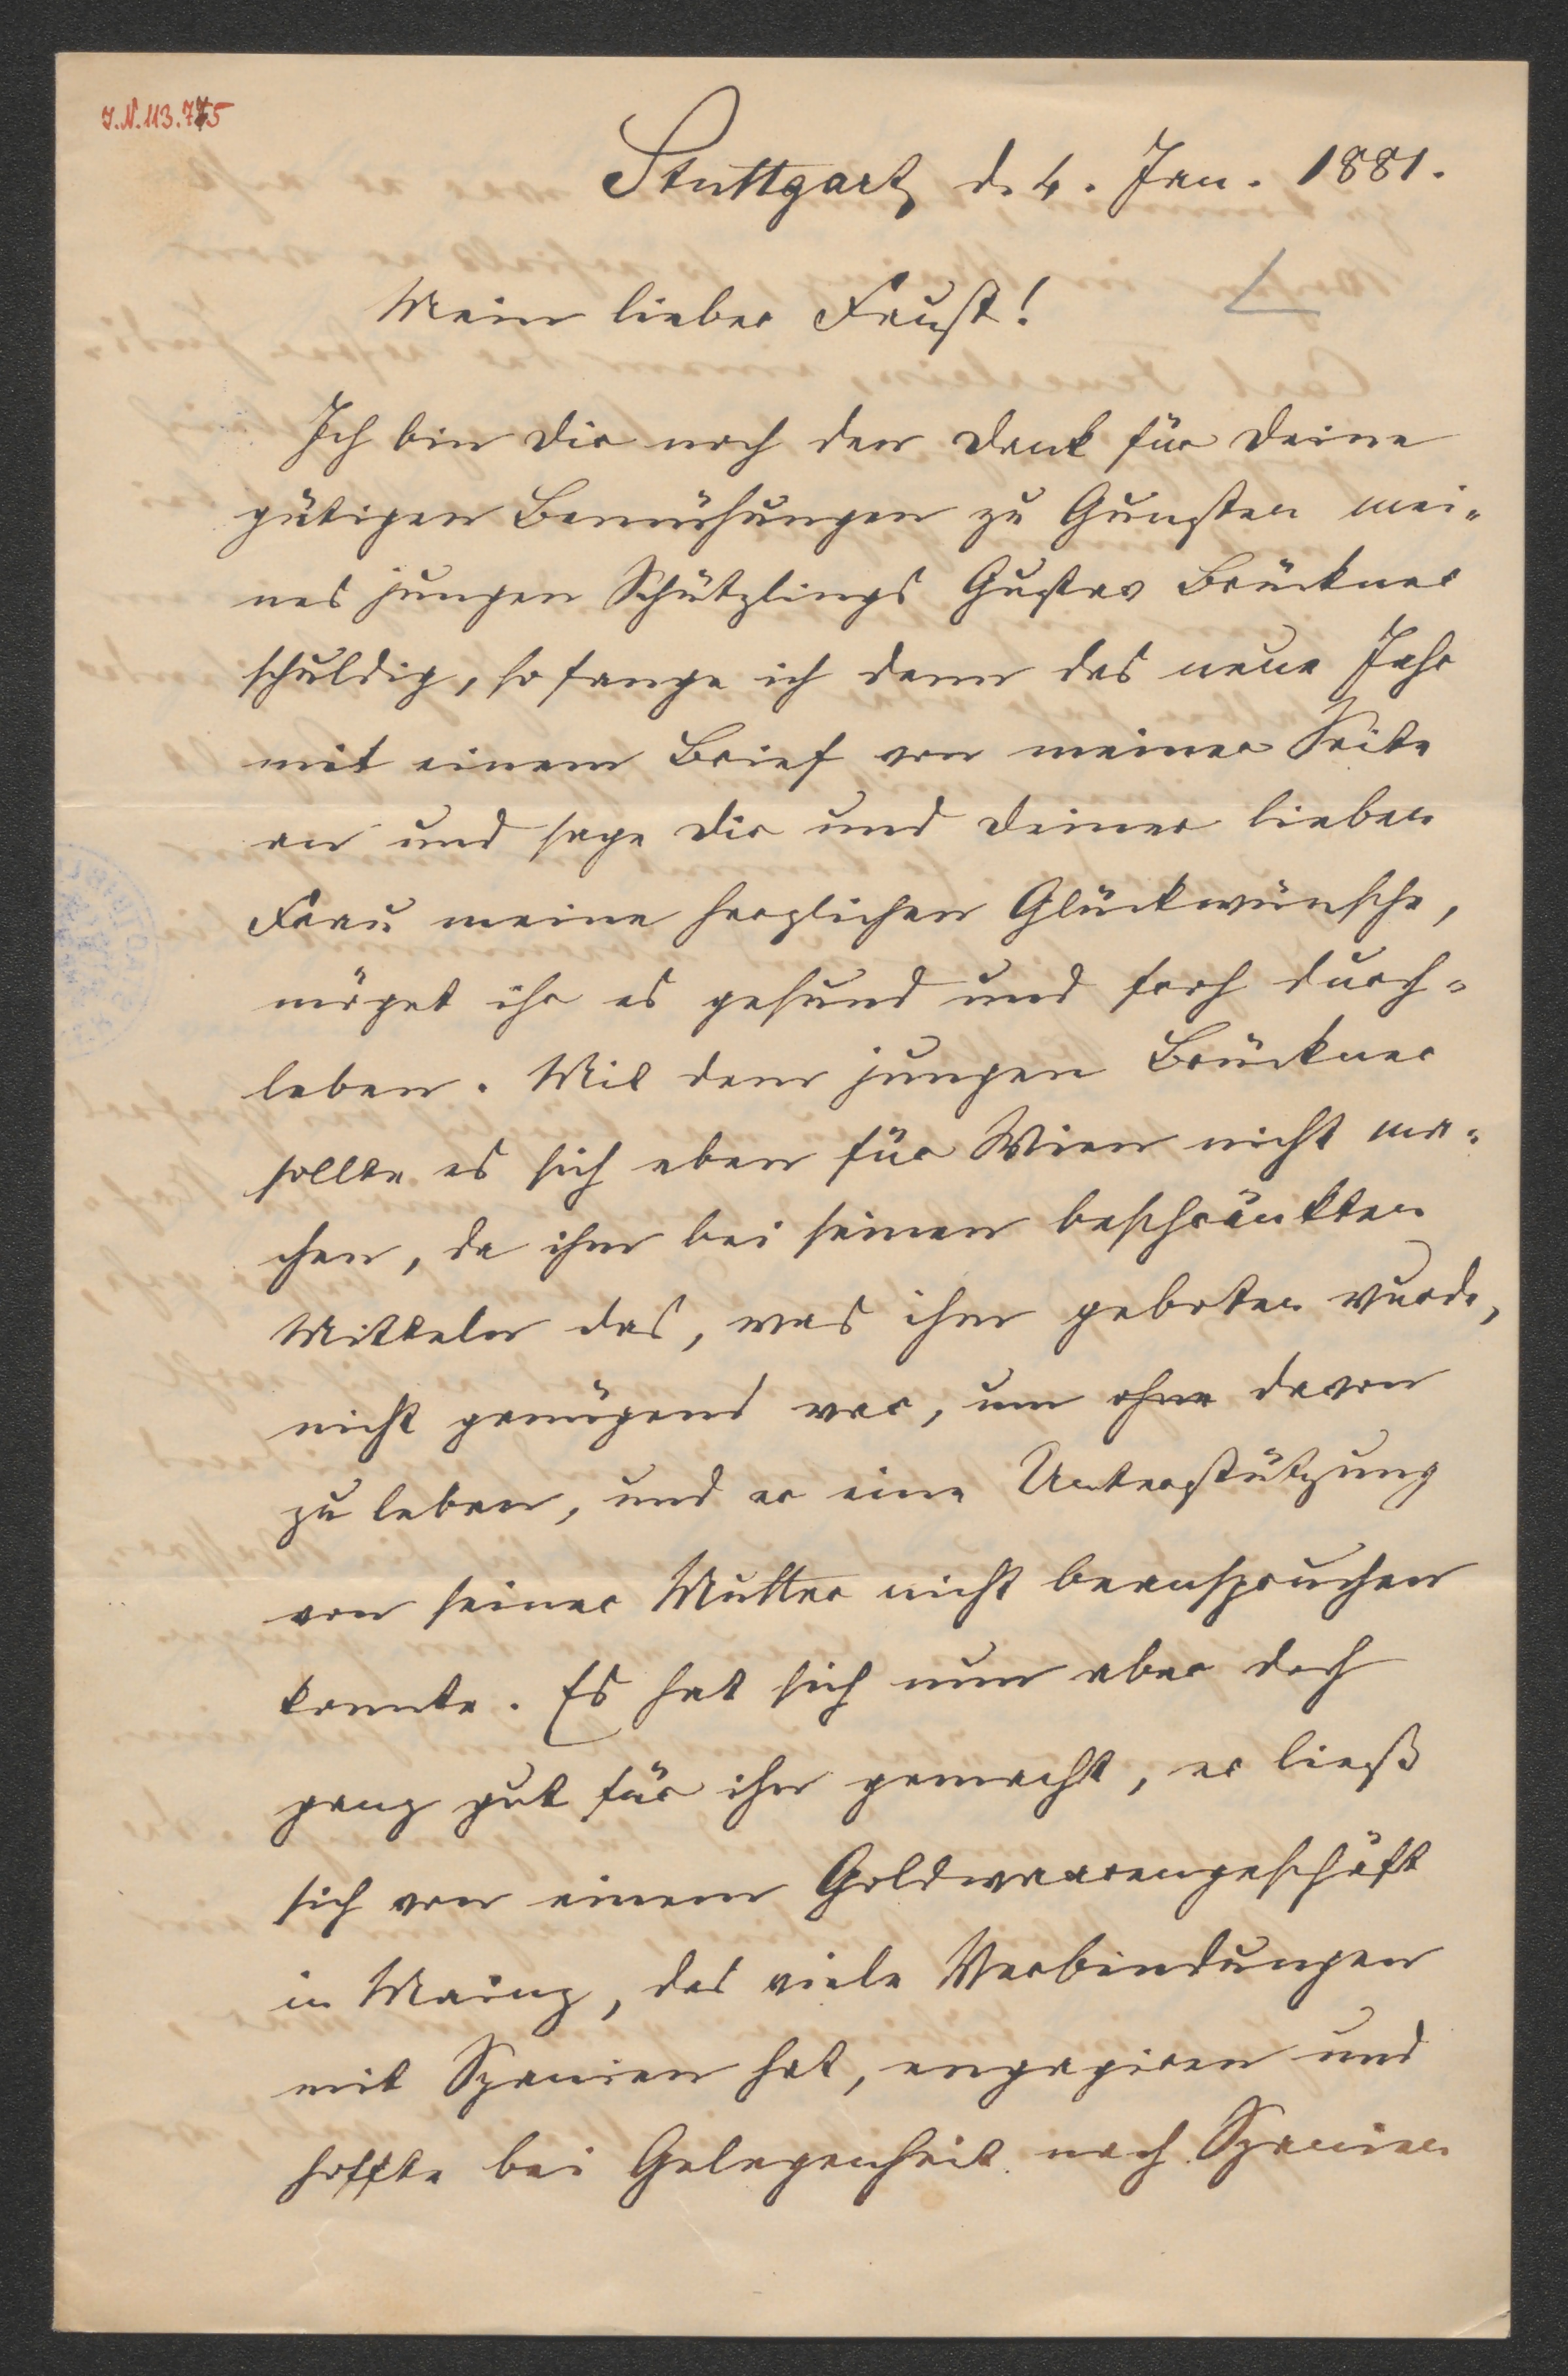 I.N. 113.775
Stuttgart, d. 4. Jan. 1881.
Mein lieber Faust!
Ich bin Dir noch den Dank für Deine
gütigen Bemühungen zu Gunsten mei-
nes jungen Schützlings Gustav Brückner
schuldig, so fange ich denn das neue Jahr
mit einem Brief von meiner Seite
an und sage Dir und Deiner lieben
Frau meine herzlichen Glückwünsche,
möget ihr es gesund und froh durch-
leben. Mit dem jungen Brückner
sollte es sich eben für Wien nicht ma-
chen, da ihm bei seinen beschränkten
Mitteln das, was ihm geboten wurde,
nicht genügend war, um davon
zu leben, und er eine Unterstützung
von seiner Mutter nicht beanspruchen
konnte. Es hat sich nun aber doch
ganz gut für ihn gemacht, er ließ
sich von einem Goldwaarengeschäft
in Mainz, das viele Verbindungen
mit Spanien hat, engagiren und
hoffte bei Gelegenheit nach Spanien